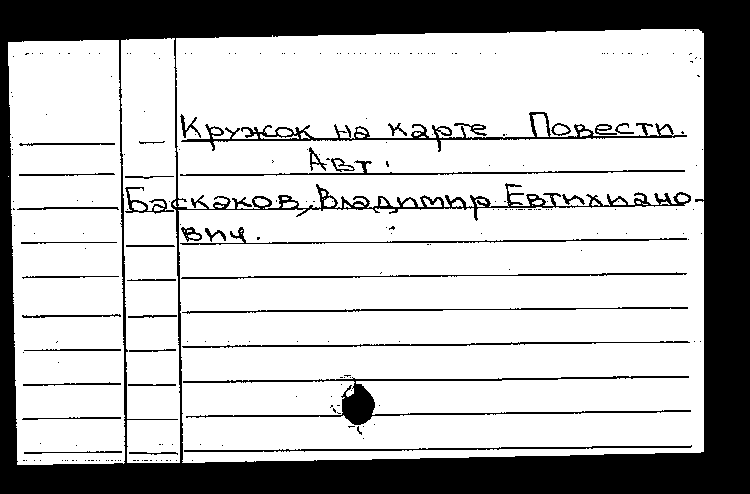 Кружок на карте. Повести.
Авт.:
Баскаков, Владимир Евтихиано-
вич.